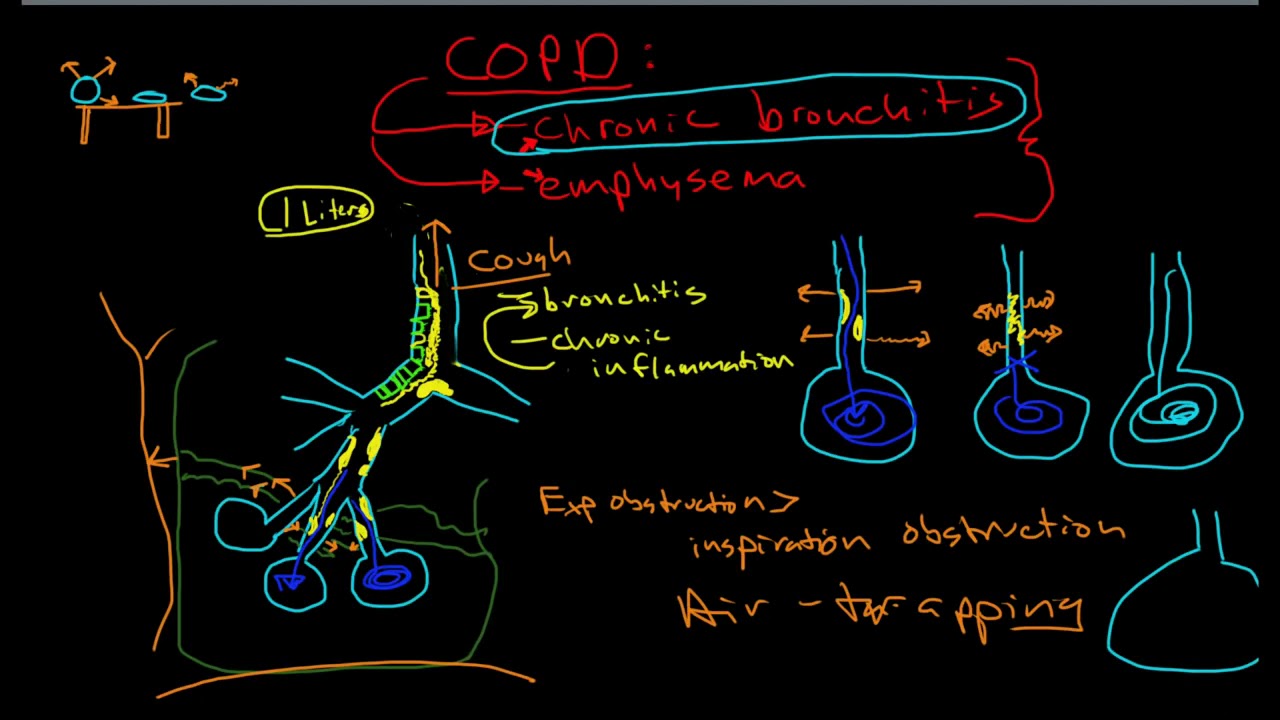 COPD:
chronic bronchitis
emphysema
1 Liters
cough
bronchitis
- chronic
inflammation
Exp obstruction >
inspiration obstruction
Air - trapping